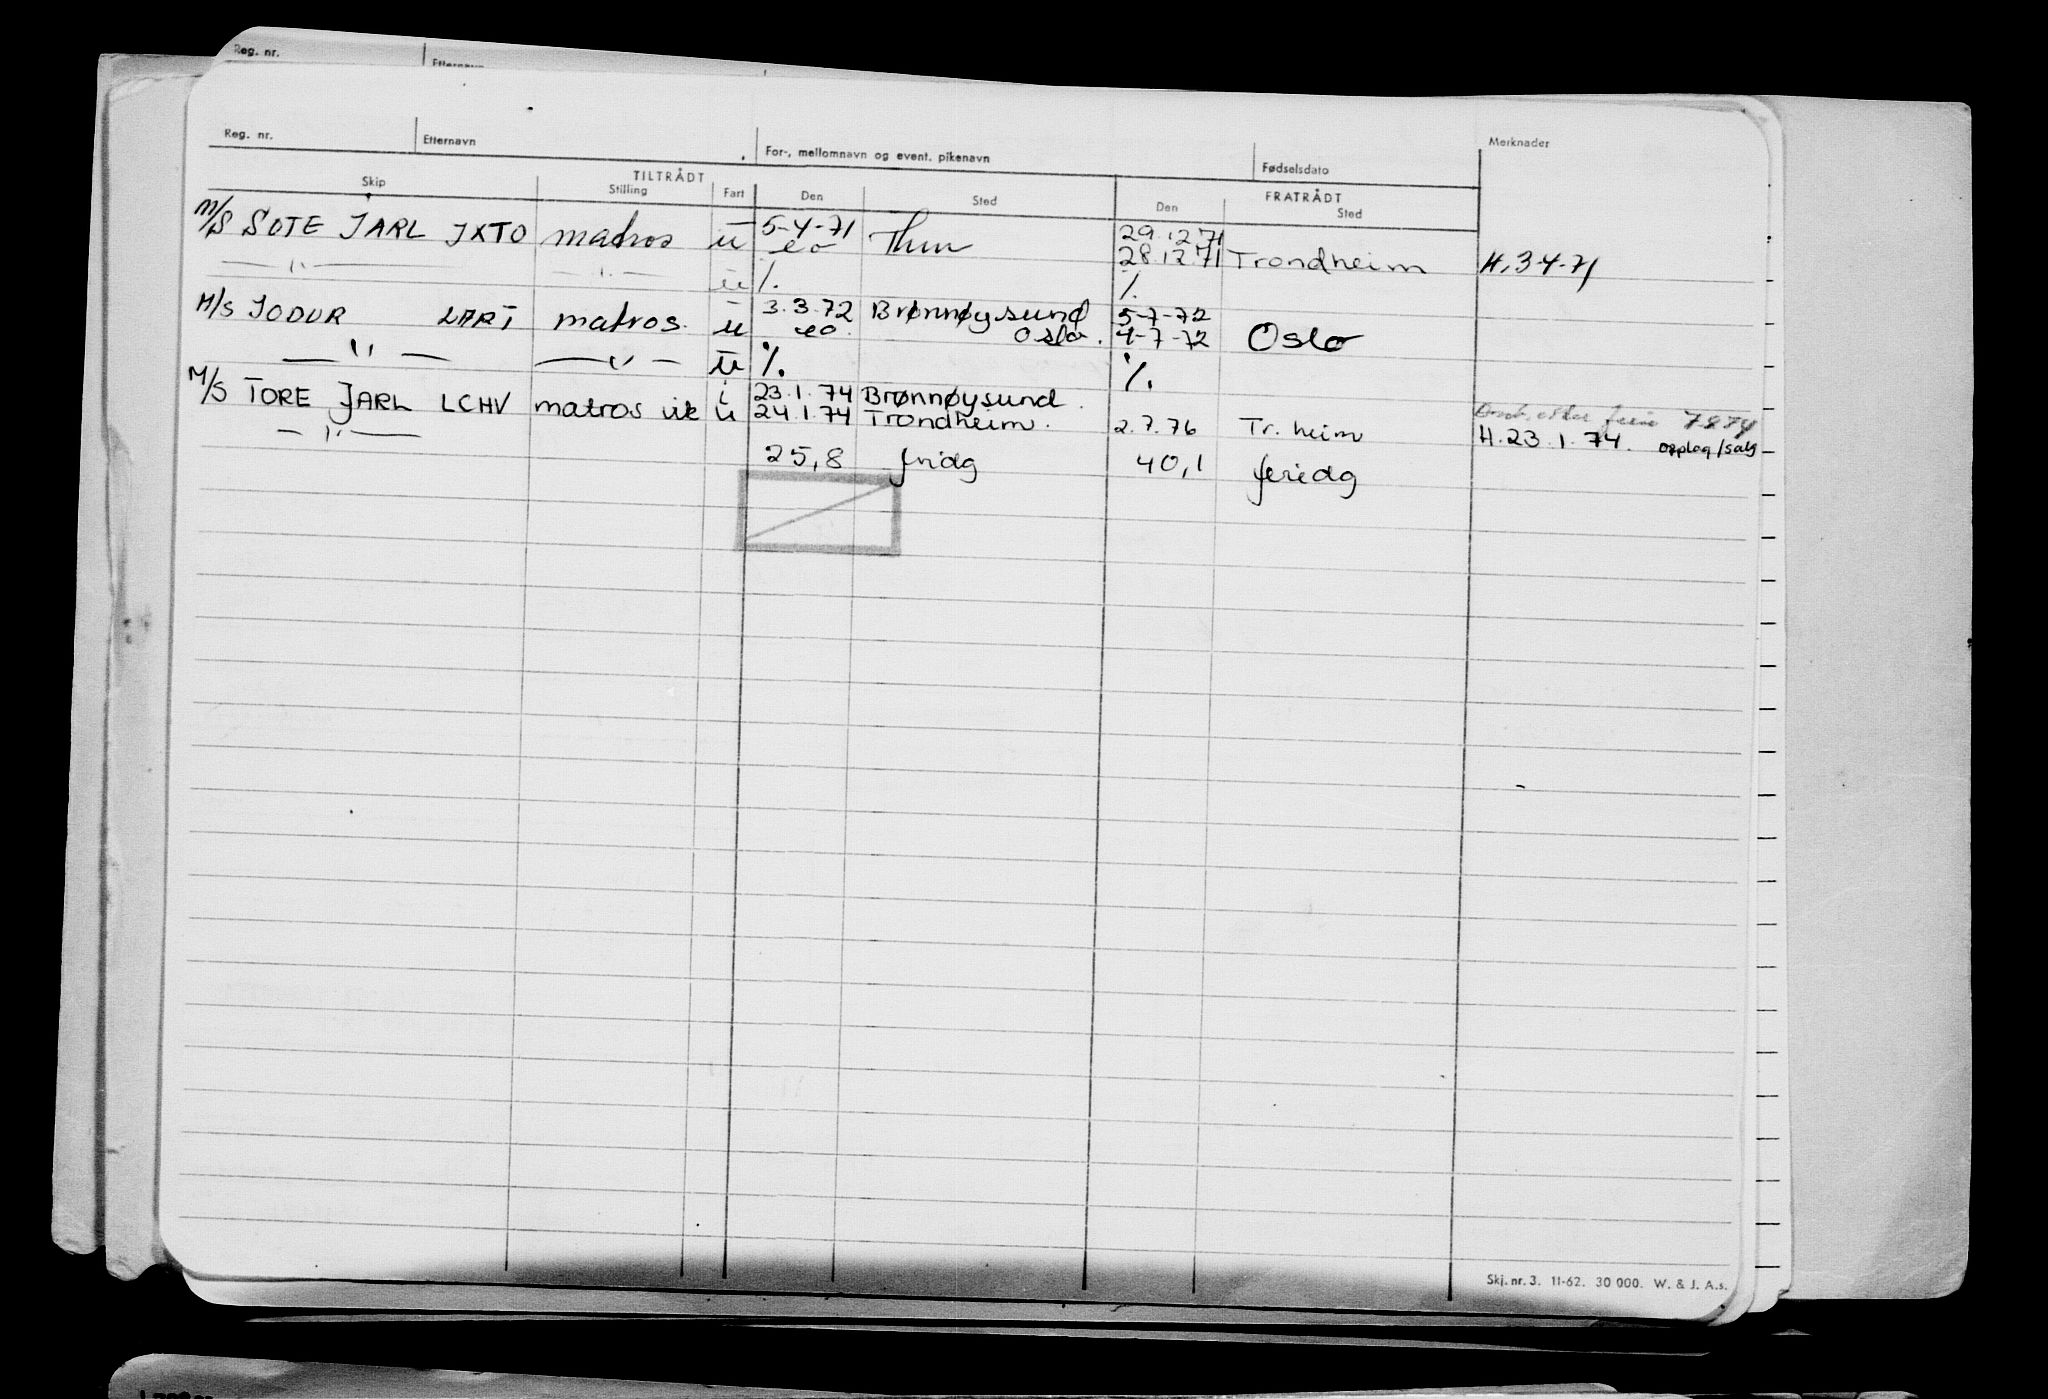 Reg. nr.
Etternavn
Reg. nr. Etternavn For-, mellomnavn og event. pikenavn Fødselsdato Merknader
TILTRÅDT FRATRÅDT
Skip Stilling Fart Den Sted Den Sted
5-4-71 29.12.71
M/S SOTE JARL JXTO matros ū eo Thm 28.12.71 Trondheim H. 3-4-71
—"— —"— ū %. %.
3.3.72 Brønnøysund 5-7-72
M/S JODUR matros. ū eo. Oslo. 4-7-72 Oslo
—"— —"— ū %. %.
i 23.1.74 Brønnøysund.
M/S TORE JARL LCHV matros uk ū 24.1.74 Trondheim. 2.7.76 Tr. heim H. 23.1.74. opplag/salg
—"—
25,8 fridg 40,1 feriedg
Skj. nr. 3. 11-62. 30 000. W. & J. A.s.